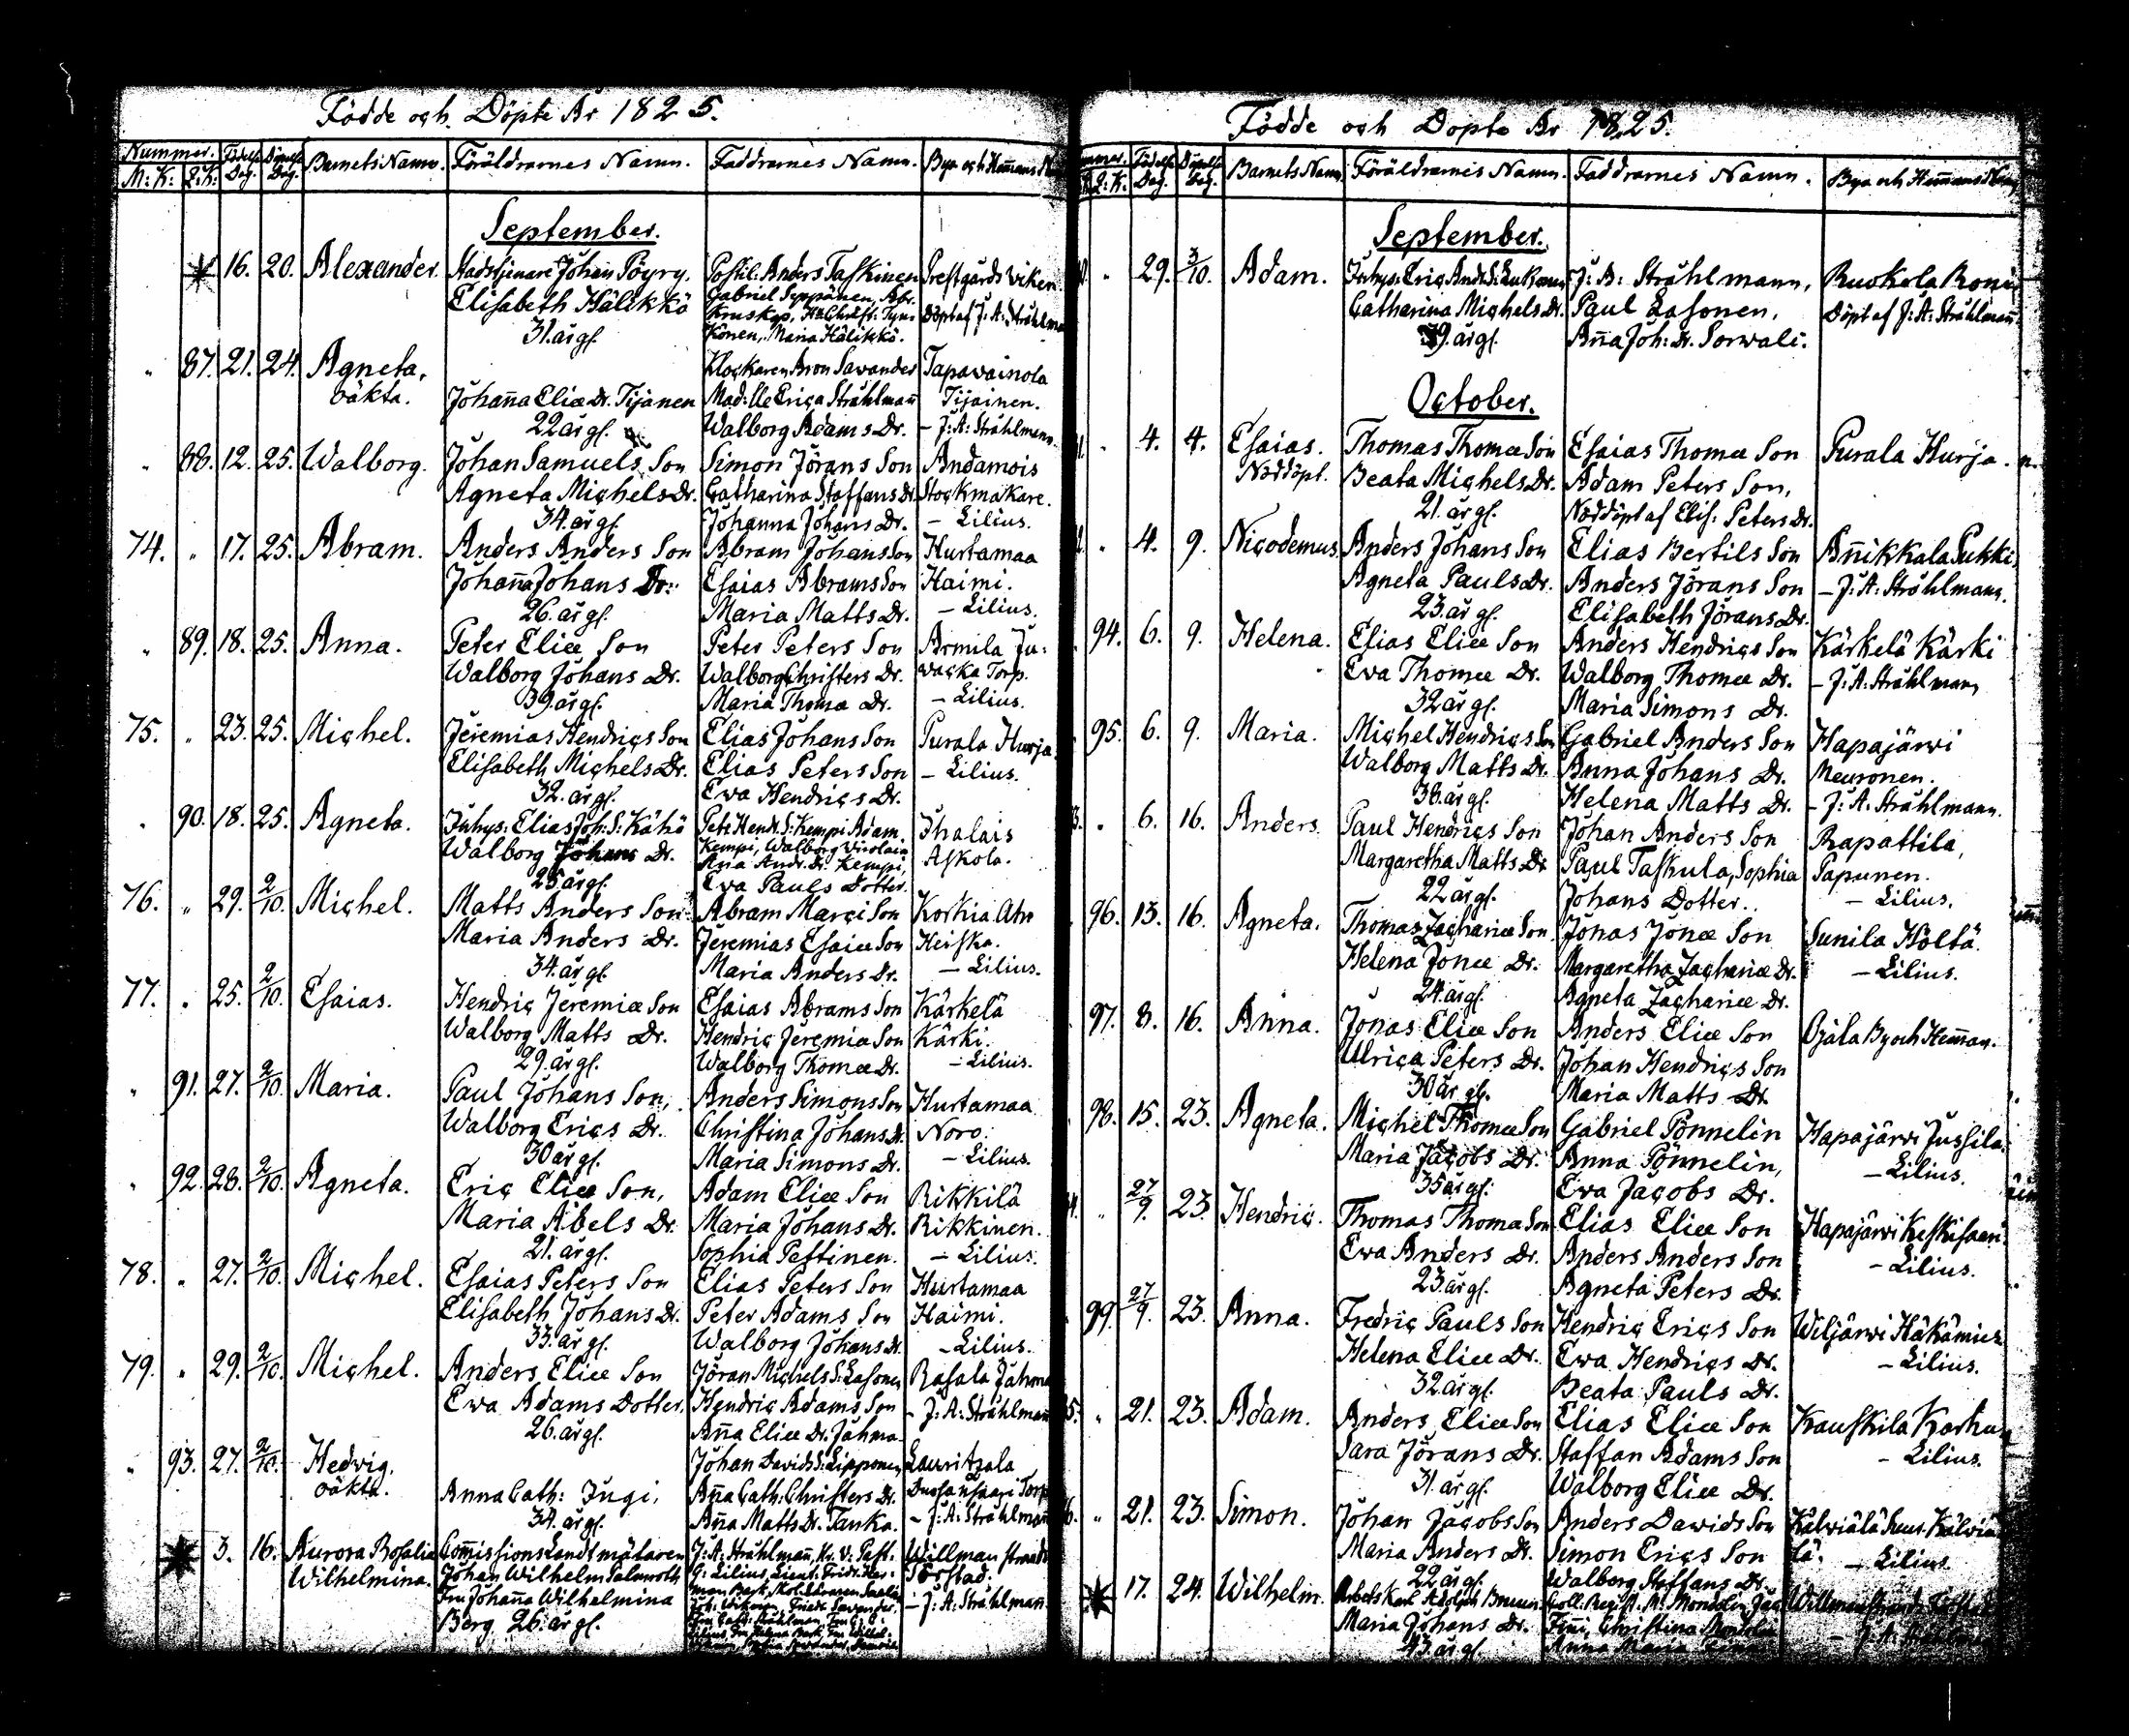 Födde och Döpte År 1825.
Nummer. Födelse Dag. Döpelse Dag. Barnets Namn. Föräldrarnes Namn. Faddrarnes Namn. Bya och Hemmans
M: K: Q: K:
September.
16. 20. Alexander. Stadstjenare Johan Pöyry. Possil. Anders Taskinen Prestgårds viken.
Elisabeth Hälikkö Gabriel Seppänen, Abr.
31. år gl. Könen, Maria Hälikkö. Döpt af J: A: Stråhlma
87. 21. 24. Agneta, Klockaren Aron Savander Tapavainola
oäkta. Johanna Eliæ Dr. Tijanen Mad:lle Erica Stråhlmañ Tijainen.
22 år gl. Walborg Adams Dr. – J: A: Stråhlmann.
88. 12. 25. Walborg. Johan Samuels Son Simon Jörans Son Andamois
Agneta Michels Dr. Catharina Staffans Dr. Stockmakare.
34. år gl. Johanna Johans Dr. – Lilius.
74. " 17. 25. Abram. Anders Anders Son Abram Johans Son Hurtamaa
Johaña Johans Dr: Esaias Abrams Son Haimi.
26. år gl. Maria Matts Dr. – Lilius.
" 89. 18. 25. Anna. Peter Eliæ Son Peter Peters Son Armila Ju-
Walborg Johans Dr. Walborg Christers Dr. wacka Torp.
39. år gl. Maria Thomæ Dr. – Lilius.
75. " 23. 25. Michel. Jeremias Hendrics Son Elias Johans Son Purala Hurja.
Elisabeth Michels Dr. Elias Peters Son – Lilius.
32. år gl. Ewa Hendrics Dr.
90. 18. 25. Agneta. Inhys: Elias Joh: S: Kähö Pet: Hend: S: Kempi Adam Ihalais
Walborg Johans Dr. Kempi, Walborg Virolain Askola.
25 år gl. Aña Andr. Dr. Kempi,
Eva Pauls Dotter.
76. " 29. 2/10. Michel. Matts Anders Son Abram Marci Son Korkia Aho
Maria Anders Dr. Jeremias Esaiæ Son Heiska.
34. år gl. Maria Anders Dr. – Lilius.
77. " 25. 2/10. Esaias. Hendric Jeremiæ Son Esaias Abrams Son Kärkelä
Walborg Matts Dr. Hendric Jeremiæ Son Kärki.
29. år gl. Walborg Thomæ Dr. – Lilius.
" 91. 27. 2/10. Maria. Paul Johans Son, Anders Simons Son Hurtamaa
Walborg Erics Dr. Christina Johans Dr. Noro.
30 år gl. Maria Simons Dr. – Lilius.
" 92. 28. 2/10. Agneta. Eric Eliæ Son, Adam Eliæ Son Rikkilä
Maria Abels Dr. Maria Johans Dr. Rikkinen.
21. år gl. Sophia Pettinen. – Lilius.
78. " 27. 2/10. Michel. Esaias Peters Son Elias Peters Son Hurtamaa
Elisabeth Johans Dr. Peter Adams Son Haimi.
33. år gl. Walborg Johans Dr. – Lilius.
79. " 29. 2/10. Michel. Anders Eliæ Son Jöran Michels S: Lasonen Rasala Jahma
Ewa Adams Dotter. Hendric Adams Son – J: A: Stråhlmañ
26. år gl. Aña Eliæ Dr. Jahma.
" 93. 27. 2/10. Hedvig. Johan Davids S: Lipponen Lauritzala
oäkta. Anna Cath: Inqi, Aña Cath: Christers Dr.
34. år gl. Aña Matts Dr. Tanka. – J: A: Stråhlmañ
3. 16. Aurora Rosalia Comissions Landtmätaren J: A: Stråhlmañ, Willmanstrands
Wilhelmina. Johan Wilhelm Palmroth Förstad.
Fru Johaña Wilhelmina – J: A: Stråhlman.
Berg 26. år gl.
Födde och Döpte År 1825.
Q: K. Födelse Dag. Döpelse Dag. Barnets Namn. Föräldrarnes Namn. Faddrarnes Namn. Bya och Hemmans
September.
" 29. 3/10. Adam. Inhys: Eric And: S: J: A: Stråhlmann, Ruokola Roni
Catharina Michels Dr. Paul Lasonen, Döpt af J: A: Stråhlmañ.
39. år gl. Aña Joh: Dr. Sorwali.
October.
" 4. 4. Esaias. Thomas Thomæ Son Esaias Thomæ Son Purala Hurja.
Nöddöpt. Beata Michels Dr. Adam Peters Son,
21. år gl. Nöddöpt af Elis: Peters Dr.
" 4. 9. Nicodemus. Anders Johans Son Elias Bertils Son Añikkala Pukki
Agneta Pauls Dr. Anders Jörans Son – J: A: Stråhlmann.
23. år gl. Elisabeth Jörans Dr.
94. 6. 9. Helena. Elias Eliæ Son Anders Hendrics Son Kärkelä Kärki
Ewa Thomæ Dr. Walborg Thomæ Dr. – J: A: Stråhlmann
32 år gl. Maria Simons Dr.
95. 6. 9. Maria. Michel Hendrics Son Gabriel Anders Son Hapajärwi
Walborg Matts Dr. Anna Johans Dr. Meuronen.
38. år gl. Helena Matts Dr. – J: A: Stråhlmann.
" 6. 16. Anders. Paul Hendrics Son Johan Anders Son Rapattila,
Margaretha Matts Dr Paul Taskula, Sophia Papunen.
22 år gl. Johans Dotter. – Lilius.
96. 13. 16. Agneta. Thomas Zachariæ Son Jonas Jonæ Son Sunila Höltä.
Helena Jonæ Dr. Margaretha Zachariæ Dr. – Lilius.
24. år gl. Agneta Zachariæ Dr.
97. 8. 16. Anna. Jonas Eliæ Son Anders Eliæ Son Ojala By och Hemman.
Ulrica Peters Dr. Johan Hendrics Son
30 år gl. Maria Matts Dr
98. 15. 23. Agneta. Michel Thomæ Son Gabriel Pönnelin Hapajärwi Jussila.
Maria Jacobs Dr. Anna Pönnelin, – Lilius.
35 år gl. Ewa Jacobs Dr.
" 27/9. 23. Hendric. Thomas Thomæ Son Elias Eliæ Son Hapajärwi Keskisaari
Ewa Anders Dr. Anders Anders Son – Lilius.
23. år gl. Agneta Peters Dr.
99. 27/9. 23. Anna. Fredric Pauls Son Hendric Erics Son Wiljärwi Häkämies
Helena Eliæ Dr. Ewa Hendrics Dr. – Lilius.
32 år gl. Beata Pauls Dr.
" 21. 23. Adam. Anders Eliæ Son Elias Eliæ Son Kauskila Karhu
Sara Jörans Dr. Staffan Adams Son – Lilius.
31. år gl. Walborg Eliæ Dr.
" 21. 23. Simon. Johan Jacobs Son Anders Davids Son Kälwiälä Suur-Kälwiä
Maria Anders Dr. Simon Erics Son lä. – Lilius.
22 år gl. Walborg Staffans Dr.
17. 24. Wilhelm. Arbets Karl Adolph Willmanstrands Förstad
Maria Johans Dr. Christina
43. år gl. Anna Maria